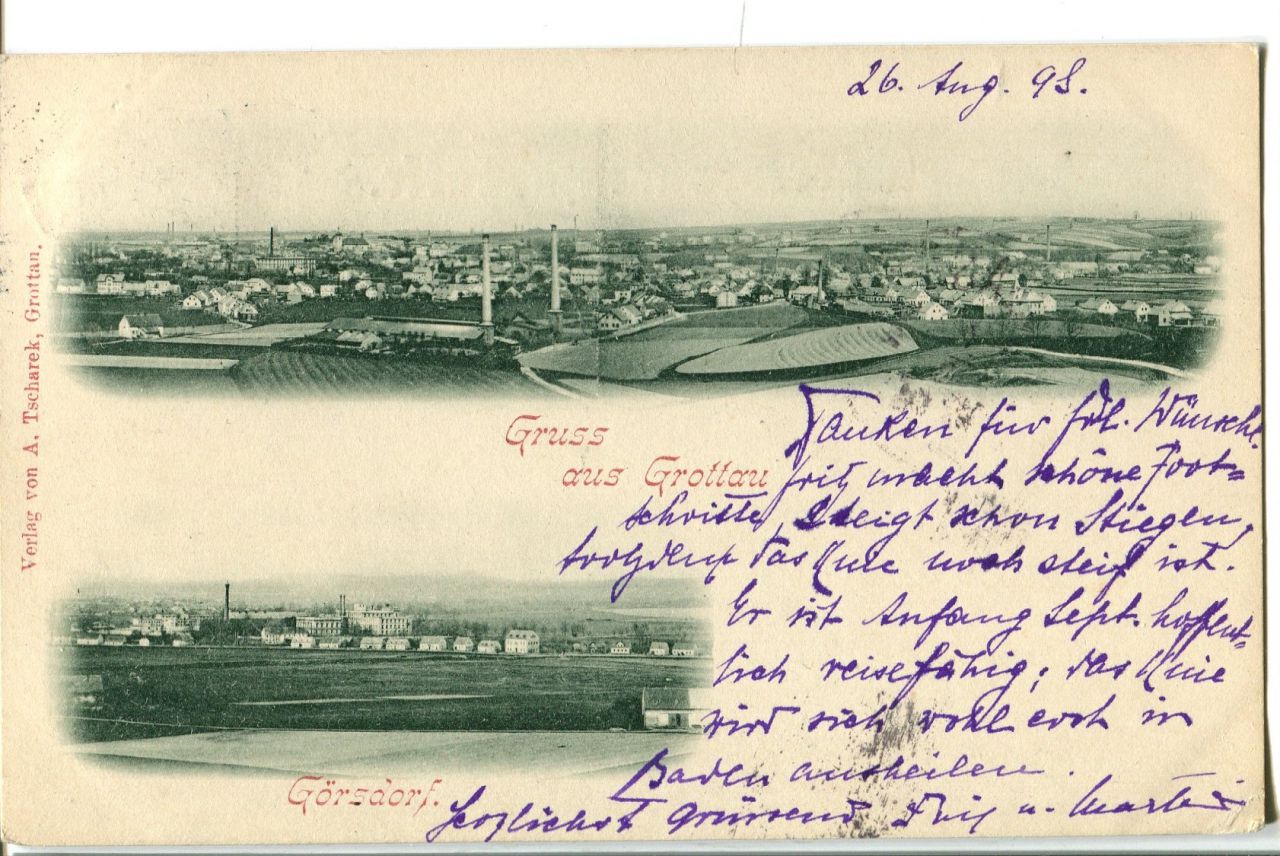 26. Aug. 98.
Verlag von A. Tscharek, Grottau.
Gruss
aus Grottau
Görsdorf.
Danken für frdl. Wünsche.
Fritz macht schöne Fort=
schritte, steigt schon Stiegen,
trotzdem das Knie noch steif ist.
Er ist Anfang Sept. hoffent=
lich reisefähig; das Knie
wird sich wohl erst in
Baden ausheilen.
Herzlichst grüssend Fritz u.